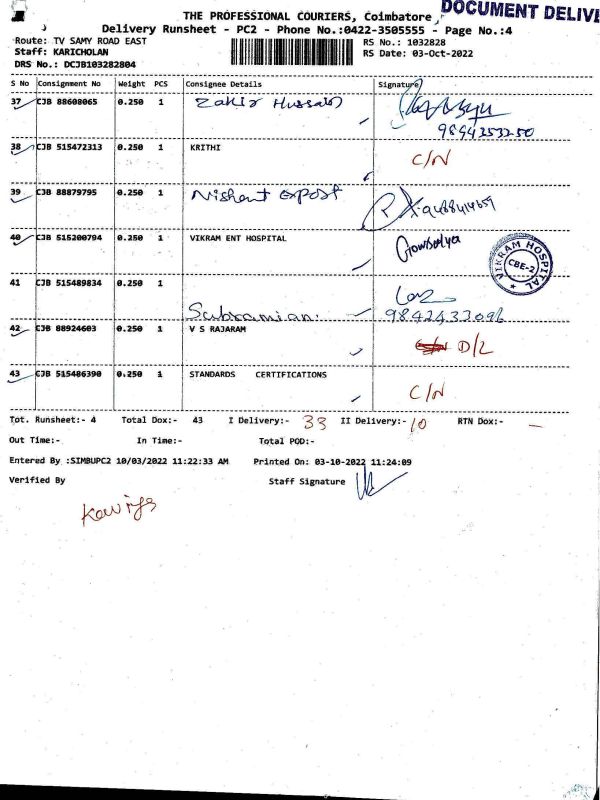 DOCUMENT DELIVE
THE PROFESSIONAL COURIERS, Coimbatore
Delivery Runsheet - PC2 - Phone No.:0422-3505555 - Page No.:4
Route: TV SAMY ROAD EAST RS No.: 1032828
Staff: KARICHOLAN RS Date: 03-Oct-2022
DRS No.: DCJB103282804
S No Consignment No Weight PCS Consignee Details Signature
37 CJB 88608065 0.250 1 Zakir Hussain
9844353250
38 CJB 515472313 0.250 1 KRITHI C/N
39 CJB 88879795 0.250 1 Nishant Export
40 CJB 515200794 0.250 1 VIKRAM ENT HOSPITAL Gowsalya
VIKRAM HOSPITAL CBE-2
41 CJB 515489834 0.250 1
Subramian. 9842433096
42 CJB 88924603 0.250 1 V S RAJARAM D/L
43 CJB 515486390 0.250 1 STANDARDS CERTIFICATIONS C/N
Tot. Runsheet:- 4 Total Dox:- 43 I Delivery:- 33 II Delivery:- 10 RTN Dox:- -
Out Time:- In Time:- Total POD:-
Entered By :SIMBUPC2 10/03/2022 11:22:33 AM Printed On: 03-10-2022 11:24:09
Verified By Staff Signature